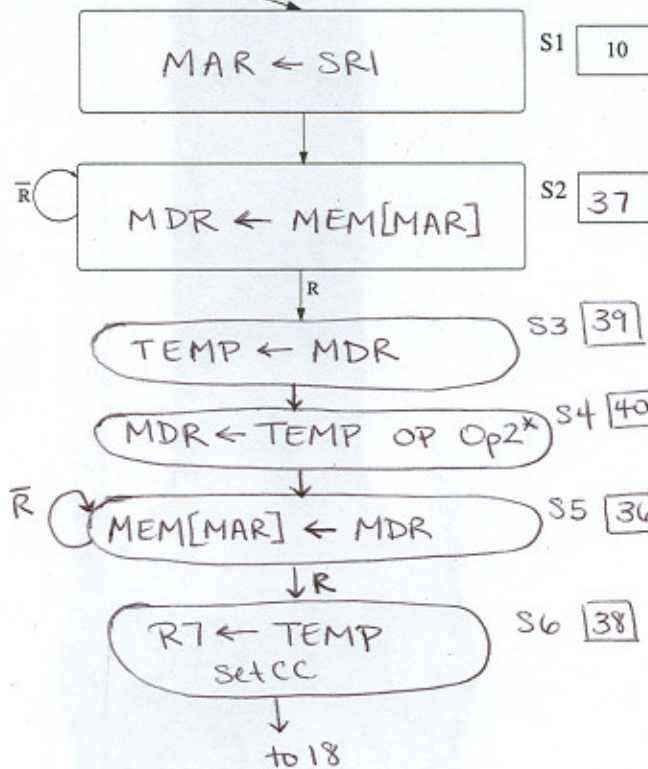 MAR ← SR1
S1 10
R̅
MDR ← MEM[MAR]
S2 37
R
TEMP ← MDR
S3 39
MDR ← TEMP OP Op2*
S4 40
R̅
MEM[MAR] ← MDR
S5 36
R
R7 ← TEMP
setCC
S6 38
to 18